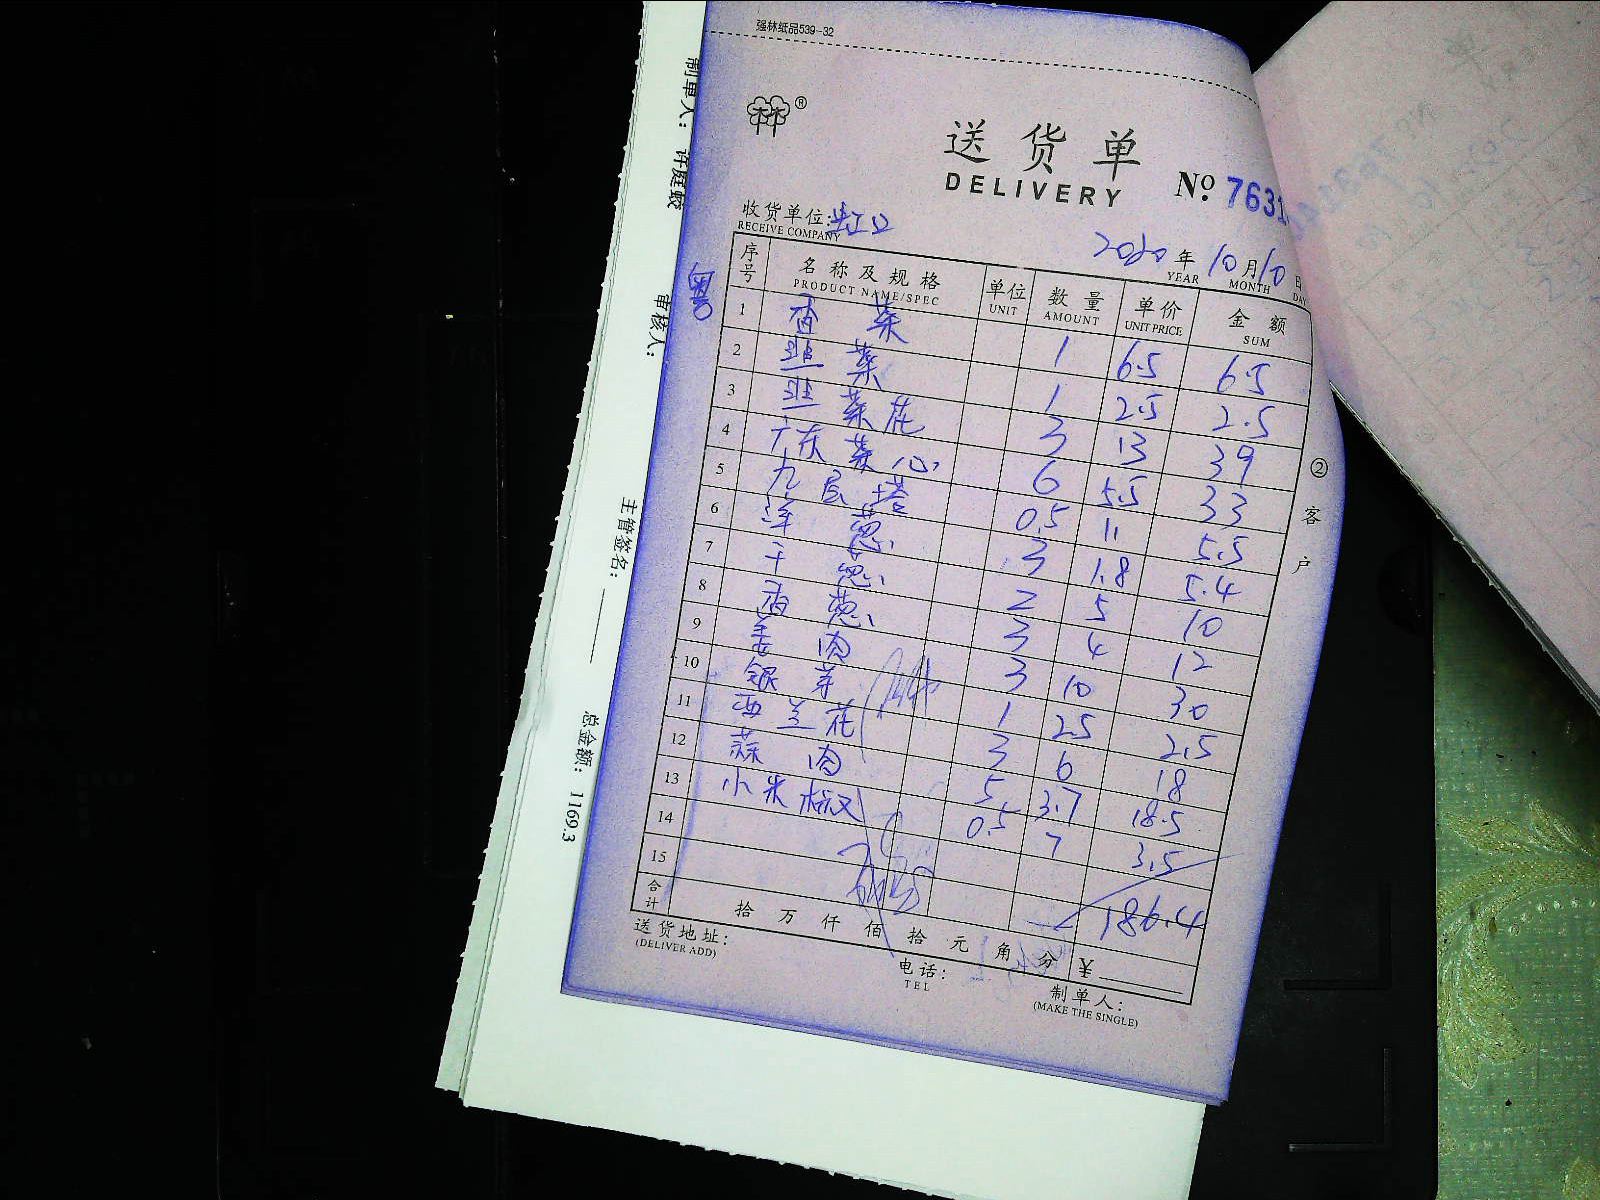 强林纸品539-32
林林®
送货单
DELIVERY
Nº 7631
收货单位:虹口
RECEIVE COMPANY
2020年10月10日
YEAR MONTH DAY
序号 名称及规格 单位 数量 单价 金额
PRODUCT NAME/SPEC UNIT AMOUNT UNIT PRICE SUM
1 香菜 1 6.5 6.5
2 韭菜 1 2.5 2.5
3 韭菜花 3 13 39
4 广东菜心 6 5.5 33
5 九层塔 0.5 11 5.5
6 洋葱 3 1.8 5.4
7 干葱 2 5 10
8 香葱 3 4 12
9 姜肉 3 10 30
10 银芽 1 2.5 2.5
11 西兰花 3 6 18
12 蒜肉 5 3.7 18.5
13 小米椒 0.5 7 3.5
14
15
186.4
合计 拾万仟佰拾元角分 ¥
送货地址:
(DELIVER ADD)
电话:
TEL
制单人:
(MAKE THE SINGLE)
②客户
制单人: 许庭
审核人:
主管签名:
总金额: 1169.3